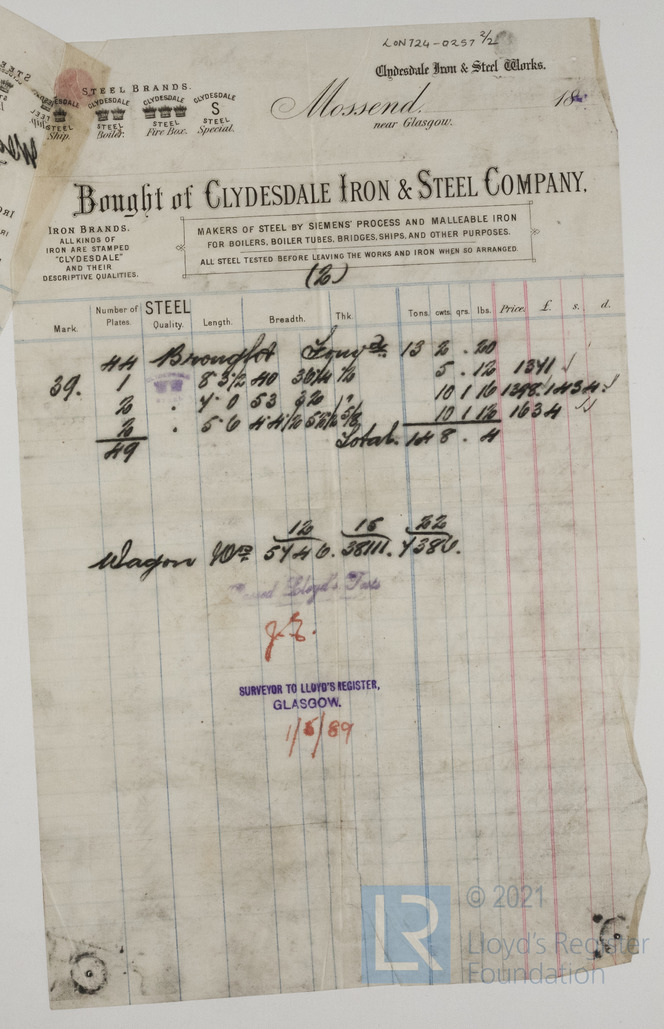 LON724-0257 2/2
Clydesdale Iron & Steel Works.
Mossend.
near Glasgow.
18
STEEL BRANDS.
CLYDESDALE STEEL Ship.
CLYDESDALE STEEL Boiler.
CLYDESDALE STEEL Fire Box.
CLYDESDALE S STEEL Special.
Bought of CLYDESDALE IRON & STEEL COMPANY.
IRON BRANDS.
ALL KINDS OF
IRON ARE STAMPED
"CLYDESDALE"
AND THEIR
DESCRIPTIVE QUALITIES.
MAKERS OF STEEL BY SIEMENS' PROCESS AND MALLEABLE IRON
FOR BOILERS, BOILER TUBES, BRIDGES, SHIPS, AND OTHER PURPOSES.
ALL STEEL TESTED BEFORE LEAVING THE WORKS AND IRON WHEN SO ARRANGED.
(2)
Mark. Number of Plates. STEEL Quality. Length. Breadth. Thk. Tons. cwts. qrs. lbs. Price. £. s. d.
44 Brought Forwd. 13 2 . 20
39. 1 8 3½ 40 36¼ ½ 5 . 12 1341
2 " 4 0 53 32 " 10 1 16
2 " 5 6 44½ 5/8 10 1 12 1634
49 Total. 14 8 . 4
12 15 22
Wagon Nos 5746. 38111. 7386.
Passed Lloyd's Tests
J.Z.
SURVEYOR TO LLOYD'S REGISTER,
GLASGOW.
1/5/89
LR
© 2021
Lloyd's Register
Foundation